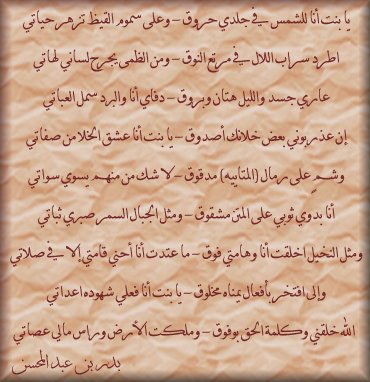 يا بنت أنا للشمس في جلدي حروق - وعلى سموم القيظ تزهر حياتي
اطرد سراب اللال في مرتع النوق - ومن الظمى يجرح لساني لهاتي
عاري جسد والليل هتان وبروق - دفاي أنا والبرد سمل العباتي
إن عذربوني بعض خلانك أصدوق - يا بنت أنا عشق الخلا من صفاتي
وشم على رمال (المتاييه) مدقوق - لا شك من منهم يسوي سواتي
أنا بدوي ثوبي على المتن مشقوق - ومثل الجبال السمر صبري ثباتي
ومثل النخيل اخلقت أنا وهامتي فوق - ما عتدت أنا أحني قامتي إلا في صلاتي
وإلى افتخر بأفعال يمناه مخلوق - يا بنت أنا فعلي شهوده اعداتي
الله خلقني وكلمة الحق بوفوق - وملكت الأرض وراس مالي عصاتي
بدر بن عبد المحسن